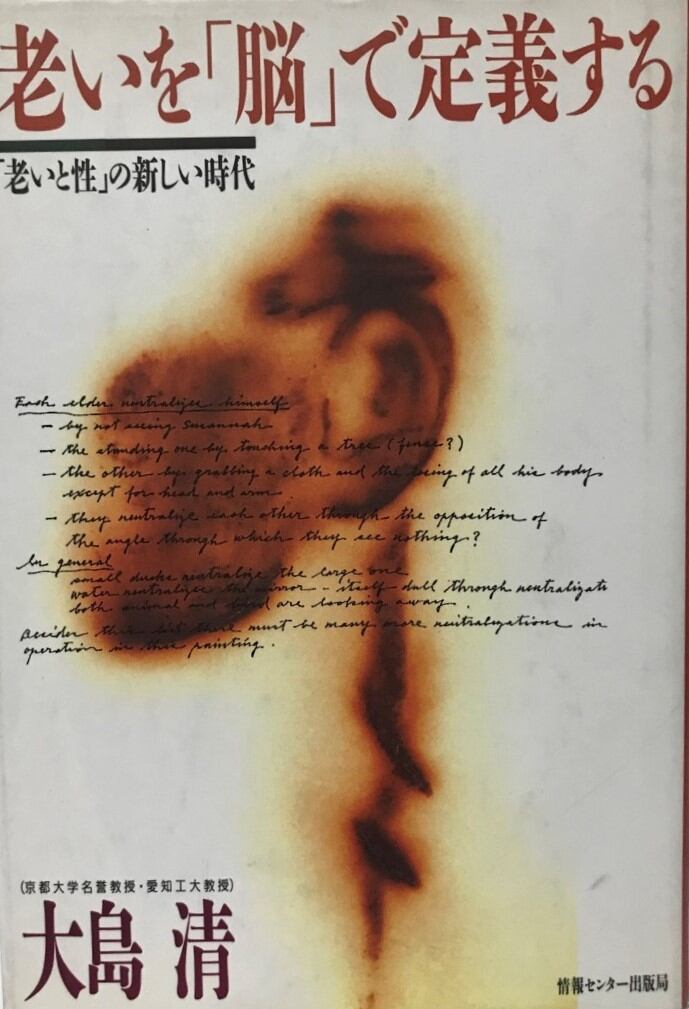 老いを「脳」で定義する
「老いと性」の新しい時代
Each elder neutralizes himself
— by not seeing Susannah
— the standing one by touching a tree (fence?)
— the other by grabbing a cloth and the losing of all his body
except for head and arm.
— they neutralize each other through the opposition of
the angle through which they see nothing?
In general
small ducks neutralize the large one
water neutralizes the mirror - itself dull through neutralizati
both animal and bird are looking away.
Besides this list there must be many more neutralizations in
operation in this painting.
(京都大学名誉教授・愛知工大教授)
大島 清
情報センター出版局